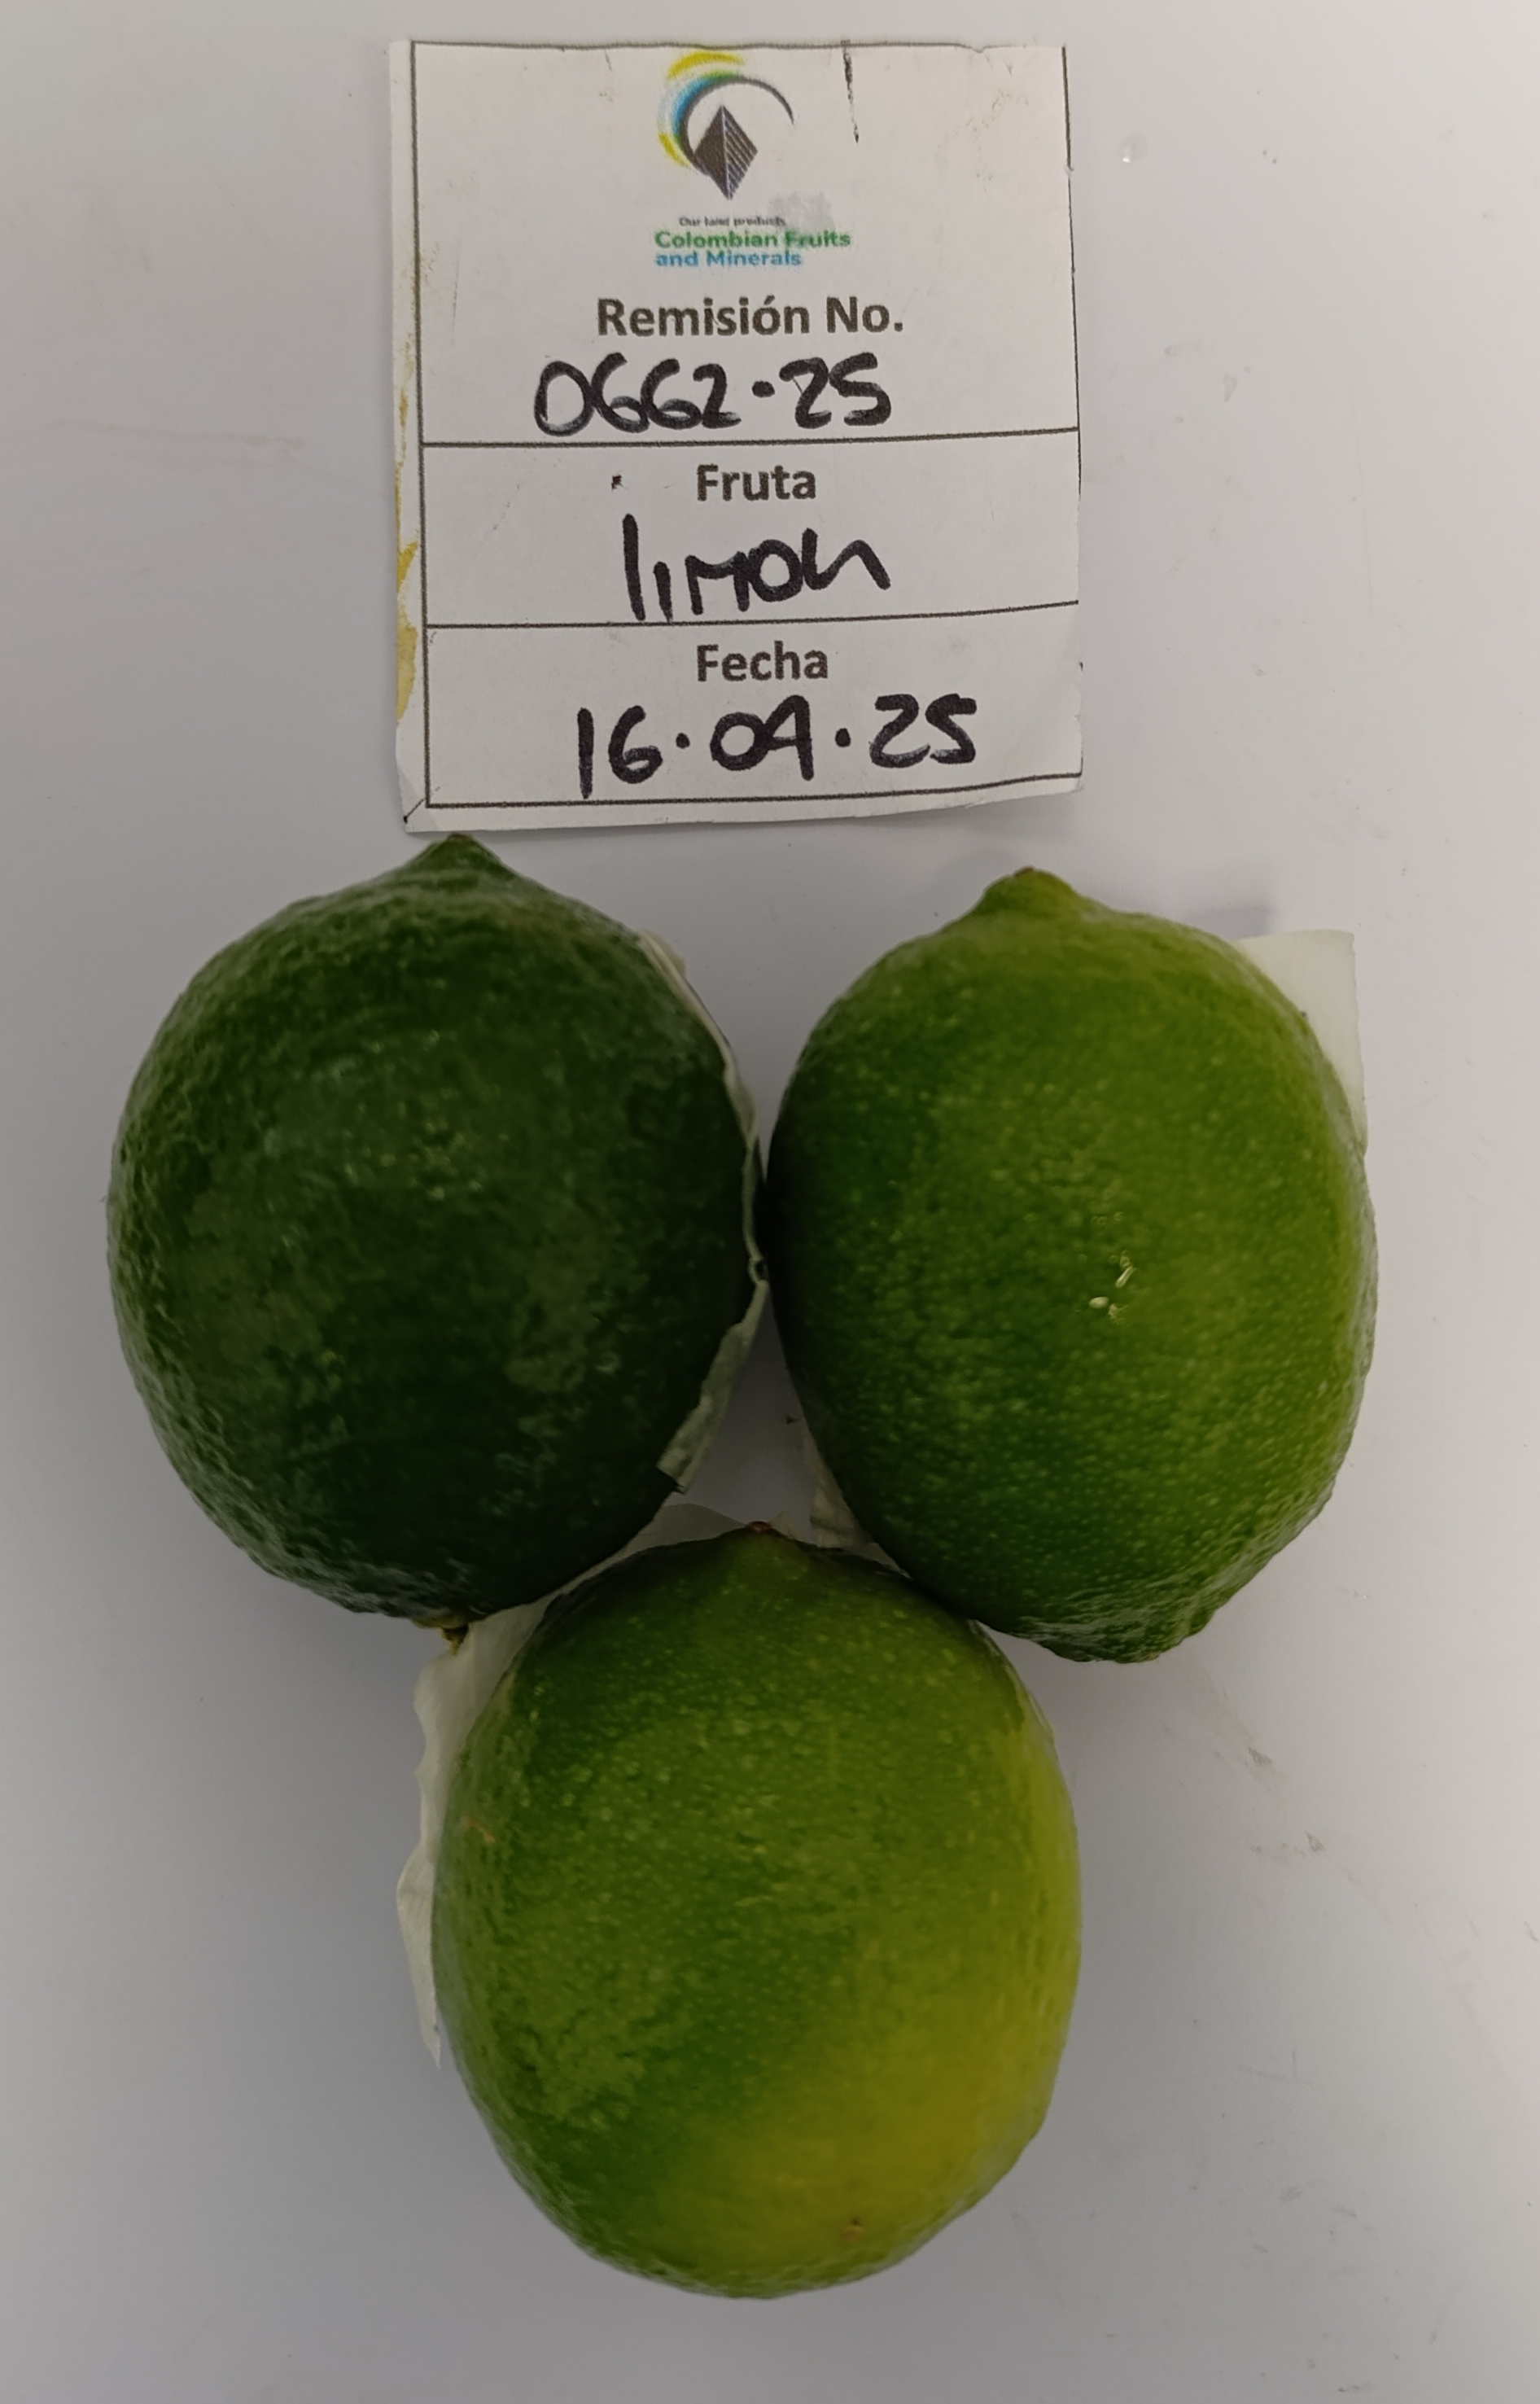 Our land products
Colombian Fruits
and Minerals
Remisión No.
0662·25
Fruta
limon
Fecha
16·04·25